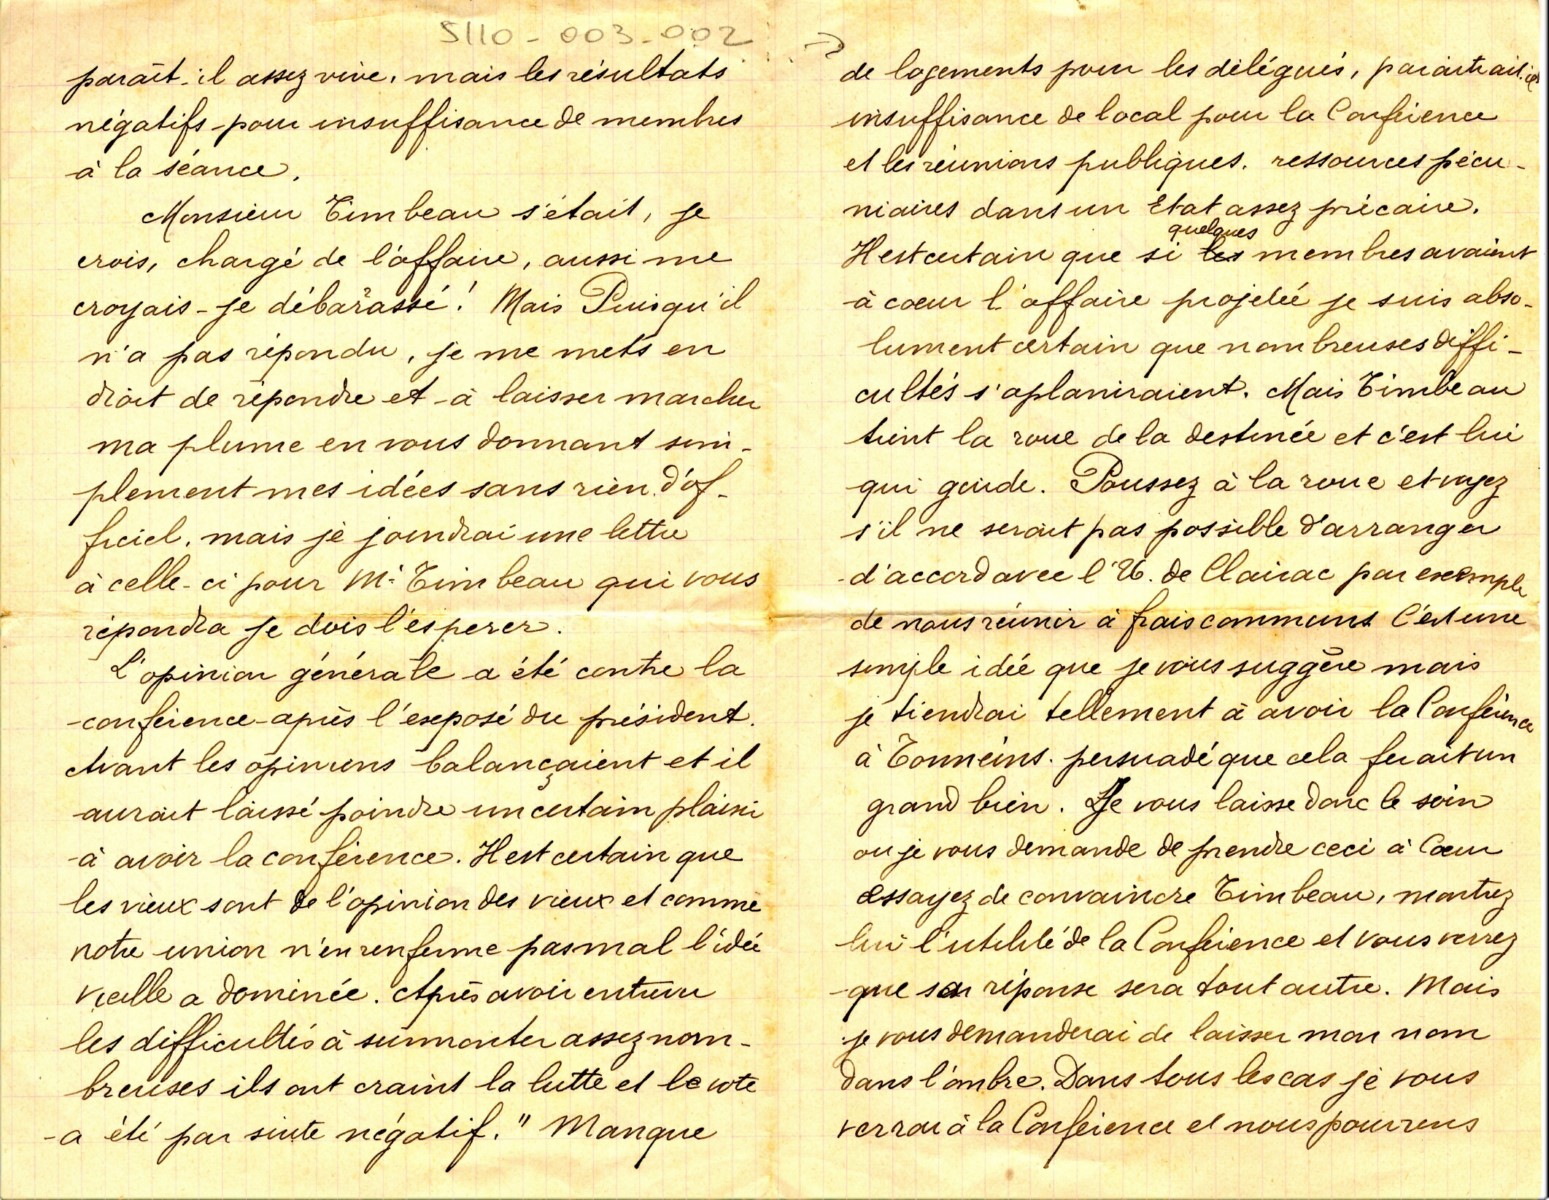 5110-003-002
paraît-il assez vive, mais les résultats
négatifs pour insuffisance de membres
à la séance.
Monsieur Timbeau s'était, je
crois, chargé de l'affaire, aussi me
croyais-je débarassé! Mais Puisqu'il
n'a pas répondu, je me mets en
droit de répondre et à laisser marcher
ma plume en vous donnant sim-
plement mes idées sans rien d'of-
ficiel, mais je joindrai une lettre
à celle-ci pour Mr Timbeau qui vous
répondra je dois l'espérer.
L'opinion générale a été contre la
conférence après l'exposé du président.
Avant les opinions balançaient et il
aurait laissé poindre un certain plaisir
à avoir la conférence. Il est certain que
les vieux sont de l'opinion des vieux et comme
notre union n'en renferme pas mal l'idée
vieille a dominée. Après avoir entrevu
les difficultés à surmonter assez nom-
breuses ils ont craint la lutte et le vote
a été par suite négatif." Manque
de logements pour les délégués, paraitrait-il,
insuffisance de local pour la Conférence
et les réunions publiques. ressources pécu-
niaires dans un Etat assez précaire.
Il est certain que si les quelques membres avaient
à coeur l'affaire projetée je suis abso-
lument certain que nombreuses diffi-
cultés s'aplaniraient. Mais Timbeau
tient la roue de la destinée et c'est lui
qui guide. Poussez à la roue et voyez
s'il ne serait pas possible d'arranger
d'accord avec l'U. de Clairac par exemple
de nous réunir à frais communs C'est une
simple idée que je vous suggère mais
je tiendrai tellement à avoir la Conférence
à Tonneins. persuadé que cela ferait un
grand bien. Je vous laisse donc le soin
ou je vous demande de prendre ceci à Coeur
essayez de convaincre Timbeau, montrez
lui l'utilité de la Conférence et vous verrez
que sa réponse sera tout autre. Mais
je vous demanderai de laisser mon nom
dans l'ombre. Dans tous les cas je vous
verrai à la Conférence et nous pourrons